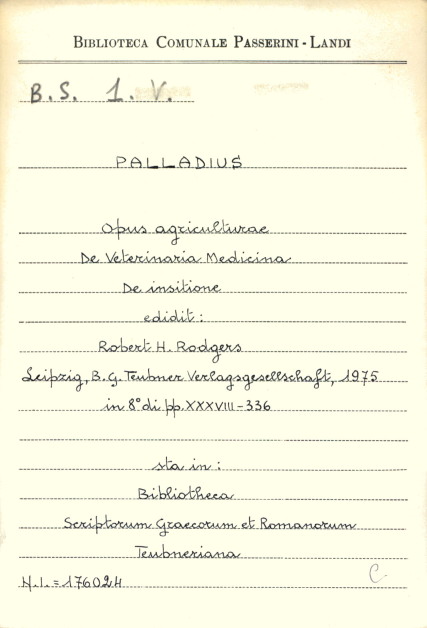 BIBLIOTECA COMUNALE PASSERINI - LANDI
B.S. 1. V.
PALLADIUS
Opus agriculturae
De Veterinaria Medicina
De insitione
edidit :
Robert H. Rodgers
Leipzig, B.G. Teubner Verlagsgesellschaft, 1975
in 8° di pp. XXXVIII-336
sta in :
Bibliotheca
Scriptorum Graecorum et Romanorum
Teubneriana
N.I. = 176024
C